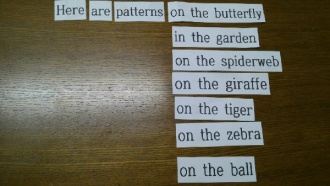 Here are patterns on the butterfly
in the garden
on the spiderweb
on the giraffe
on the tiger
on the zebra
on the ball